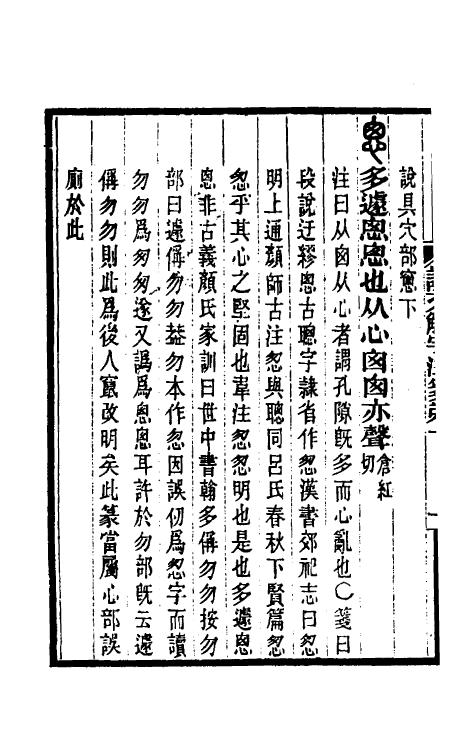 說具穴部窻下
多遽悤悤也从心囪囪亦聲倉紅切
注曰从囪从心者謂孔隙旣多而心亂也〇箋曰
段說迂繆悤古聰字隷省作怱漢書郊祀志曰怱
明上通顏師古注怱與聰同呂氏春秋下賢篇怱
怱乎其心之堅固也韋注怱怱明也是也多遽悤
悤非古義顏氏家訓曰世中書翰多偁勿勿按勿
部曰遽偁勿勿葢勿本作怱因誤仞爲怱字而讀
勿勿爲匆匆遂又譌爲悤悤耳許於勿部旣云遽
偁勿勿則此爲後人竄改明矣此篆當屬心部誤
廁於此